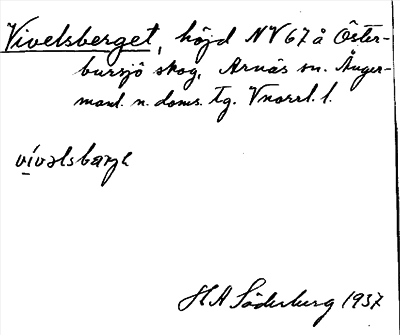 Vivelsberget, höjd NV 67 å Öster-
bursjö skog, Arnäs sn. Ånger-
manl. n. doms. tg. Vnorrl. l.
vívəlsbærjə
H A Söderburg 1937